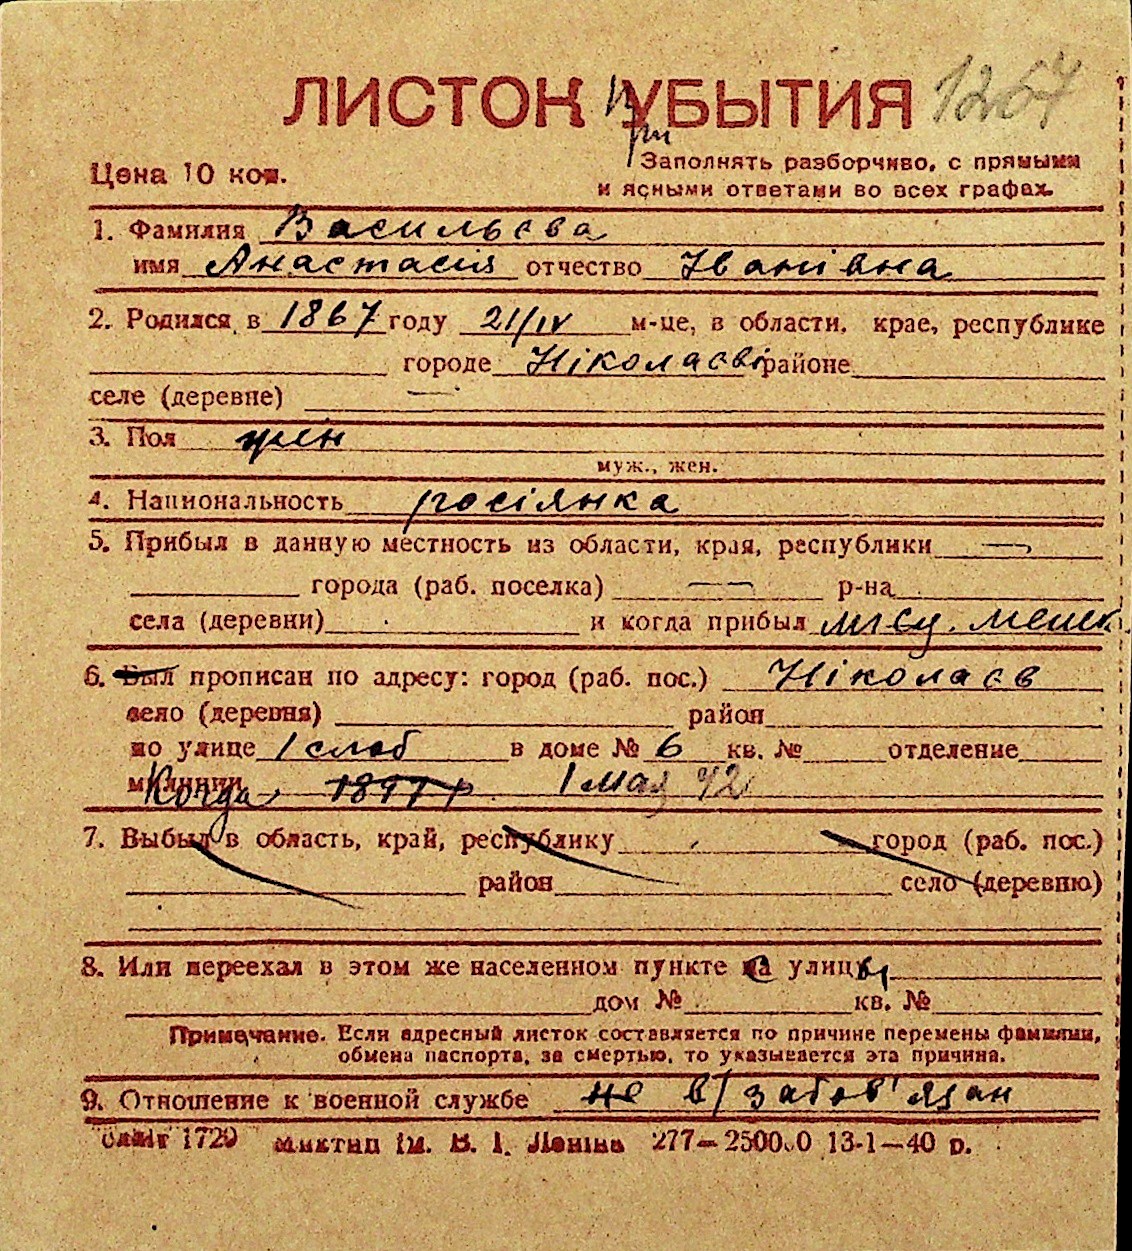 ЛИСТОК УБЫТИЯ 1267
При
Цена 10 коп.
Заполнять разборчиво, с прямыми
и ясными ответами во всех графах.
1. Фамилия Васильєва
имя Анастасия отчество Іванівна
2. Родился в 1867 году 21/IV м-це, в области, крае, республике
городе Ніколаєві районе
селе (деревне) —
3. Пол жен
муж., жен.
4. Национальность росіянка
5. Прибыл в данную местность из области, края, республики —
города (раб. поселка) — р-на
села (деревни) и когда прибыл місц. мешк.
6. Был прописан по адресу: город (раб. пос.) Ніколаєв
село (деревня) район
по улице 1 слоб в доме № 6 кв. № отделение
милиции Когда 1897 р. 1 мая 42
7. Выбыл в область, край, республику город (раб. пос.)
район село (деревню)
8. Или переехал в этом же населенном пункте с улицы
дом № кв. №
Примечание. Если адресный листок составляется по причине перемены фамилии,
обмена паспорта, за смертью, то указывается эта причина.
9. Отношение к военной службе не в/забов'язан
1729 Миктип ім. В. І. Леніна 277—250000 13-1—40 р.